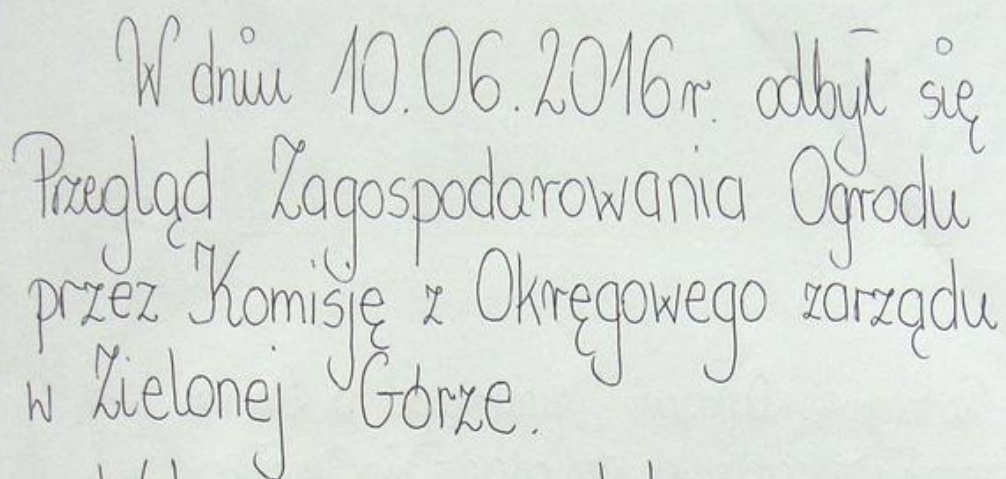 W dniu 10.06.2016r. odbył się
Przegląd Zagospodarowania Ogrodu
przez Komisję z Okręgowego zarządu
w Zielonej Górze.